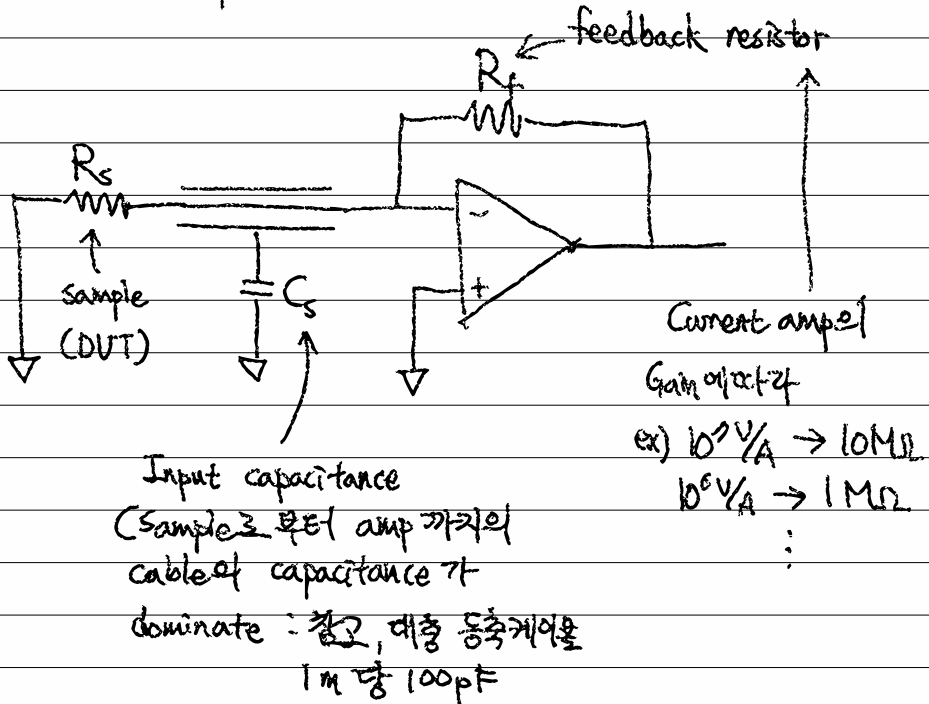 feedback resistor
Rf
Rs
sample
(DUT)
Cs
-
+
Current amp의
Gain에따라
ex) 10⁷ V/A → 10MΩ
10⁶ V/A → 1MΩ
⋮
Input capacitance
(Sample로 부터 amp 까지의
cable의 capacitance 가
dominate : 참고, 대충 동축케이블
1m 당 100pF